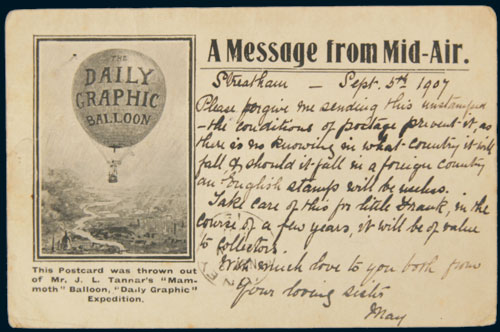 THE
DAILY
GRAPHIC
BALLOON
This Postcard was thrown out
of Mr. J. L. Tannar's "Mam-
moth" Balloon, "Daily Graphic"
Expedition.
A Message from Mid-Air.
Streatham — Sept. 5th 1907
Please forgive me sending this unstamped
— the conditions of postage prevent it, as
there is no knowing in what country it will
fall & should it fall in a foreign country
an English stamp will be useless.
Take care of this for little Frank, in the
course of a few years, it will be of value
to collectors.
With much love to you both from
Your loving sister
May